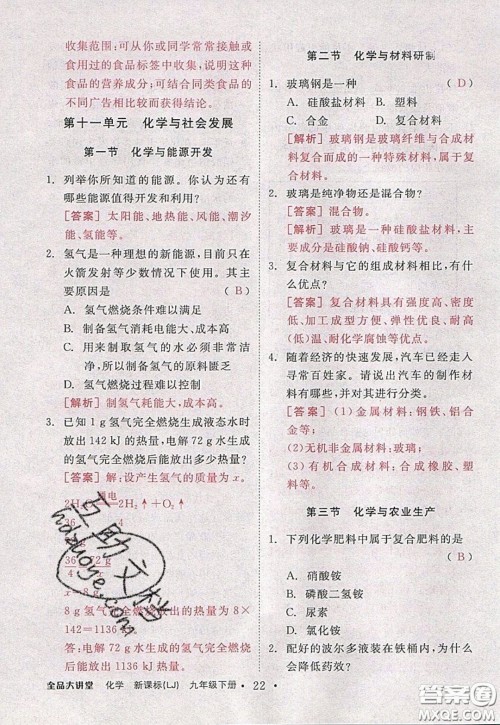 收集范围:可以或同学常常接触或
食用过的食品标签或书籍中记载
食品的营养成分;可收集这种或这种
不同广告相比有何优缺点。
第十一单元 化学与社会发展
第一节 化学与能源开发
1. 列举你所知道的能源。你认为还有
哪些能源值得开发和利用?
[答案] 太阳能、地热能、风能、潮汐
能、氢能等。
2. 氢气是一种理想的新能源,目前只在
火箭发射等少数情况下使用。其主
要原因是 (B)
A. 氢气燃烧条件难以满足
B. 制备氢气消耗电能大,成本高
C. 用来制取氢气的水必须非常洁
净,所以制备氢气的原料匮乏
D. 氢气燃烧过程难以控制
[解析] 制氢气耗能大,成本高。
3. 已知 1 g 氢气完全燃烧生成液态水时
放出 142 kJ 的热量,电解 72 g 水生成
的氢气完全燃烧后能放出多少热量?
[答案] 解:设产生氢气的质量为 x。
通电
↑+O₂↑
36
72 g x
x=8 g
8 g 氢气完全燃烧放出的热量为 8×
142=1136
答:电解 72 g 水生成的氢气完全燃烧
后能放出 1136 kJ 的热量。
第二节 化学与材料研制
1. 玻璃钢是一种 (D)
A. 硅酸盐材料 B. 塑料
C. 合金 D. 复合材料
[解析] 玻璃钢是玻璃纤维与合成材
料复合而成的一种特殊材料,属于复
合材料。
2. 玻璃是纯净物还是混合物?
[答案] 混合物。
[解析] 玻璃属于无机非金属材料,主
要成分是硅酸钠、硅酸钙等。
3. 复合材料与它的组成材料相比,有什
么优点?
[答案] 复合材料具有强度高、密度
小、加工成型方便、弹性优良、耐高(低)
温、耐化学腐蚀等优点。
4. 随着经济的快速发展,汽车已经走入
寻常百姓家。请列举出汽车中的材料,
并对其进行分类。
[答案] (1)金属材料:钢铁、铝合
金等;
(2)无机非金属材料:玻璃;
(3)有机高分子材料:合成橡胶、塑
料等。
第三节 化学与农业生产
1. 下列化学肥料中属于复合肥料的是
(B)
A. 硝酸铵
B. 磷酸二氢铵
C. 尿素
D. 硫酸铵
2. 配好的波尔多液装在铁桶内,为什么
会降低药效?
全品大讲堂 化学 新课标(LJ) 九年级下册 • 22 •
答案圈
MXQE.COM